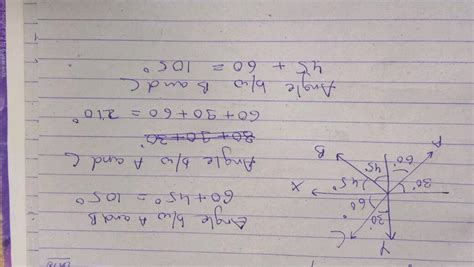 Angle b/w A and B
60 + 45° = 105°
Angle b/w A and C
60 + 90 + 60 = 210°
Angle b/w B and C
45 + 60 = 105°
Y
C
30°
60°
X
45°
45
30°
60°
B
A